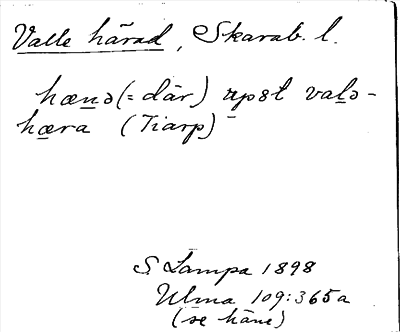 Valle härad, Skarab. l.
hænə (= där) upst valə-
hæra (Tiarp)
S Lampa 1898
Ulma 109:365a
(se häne)